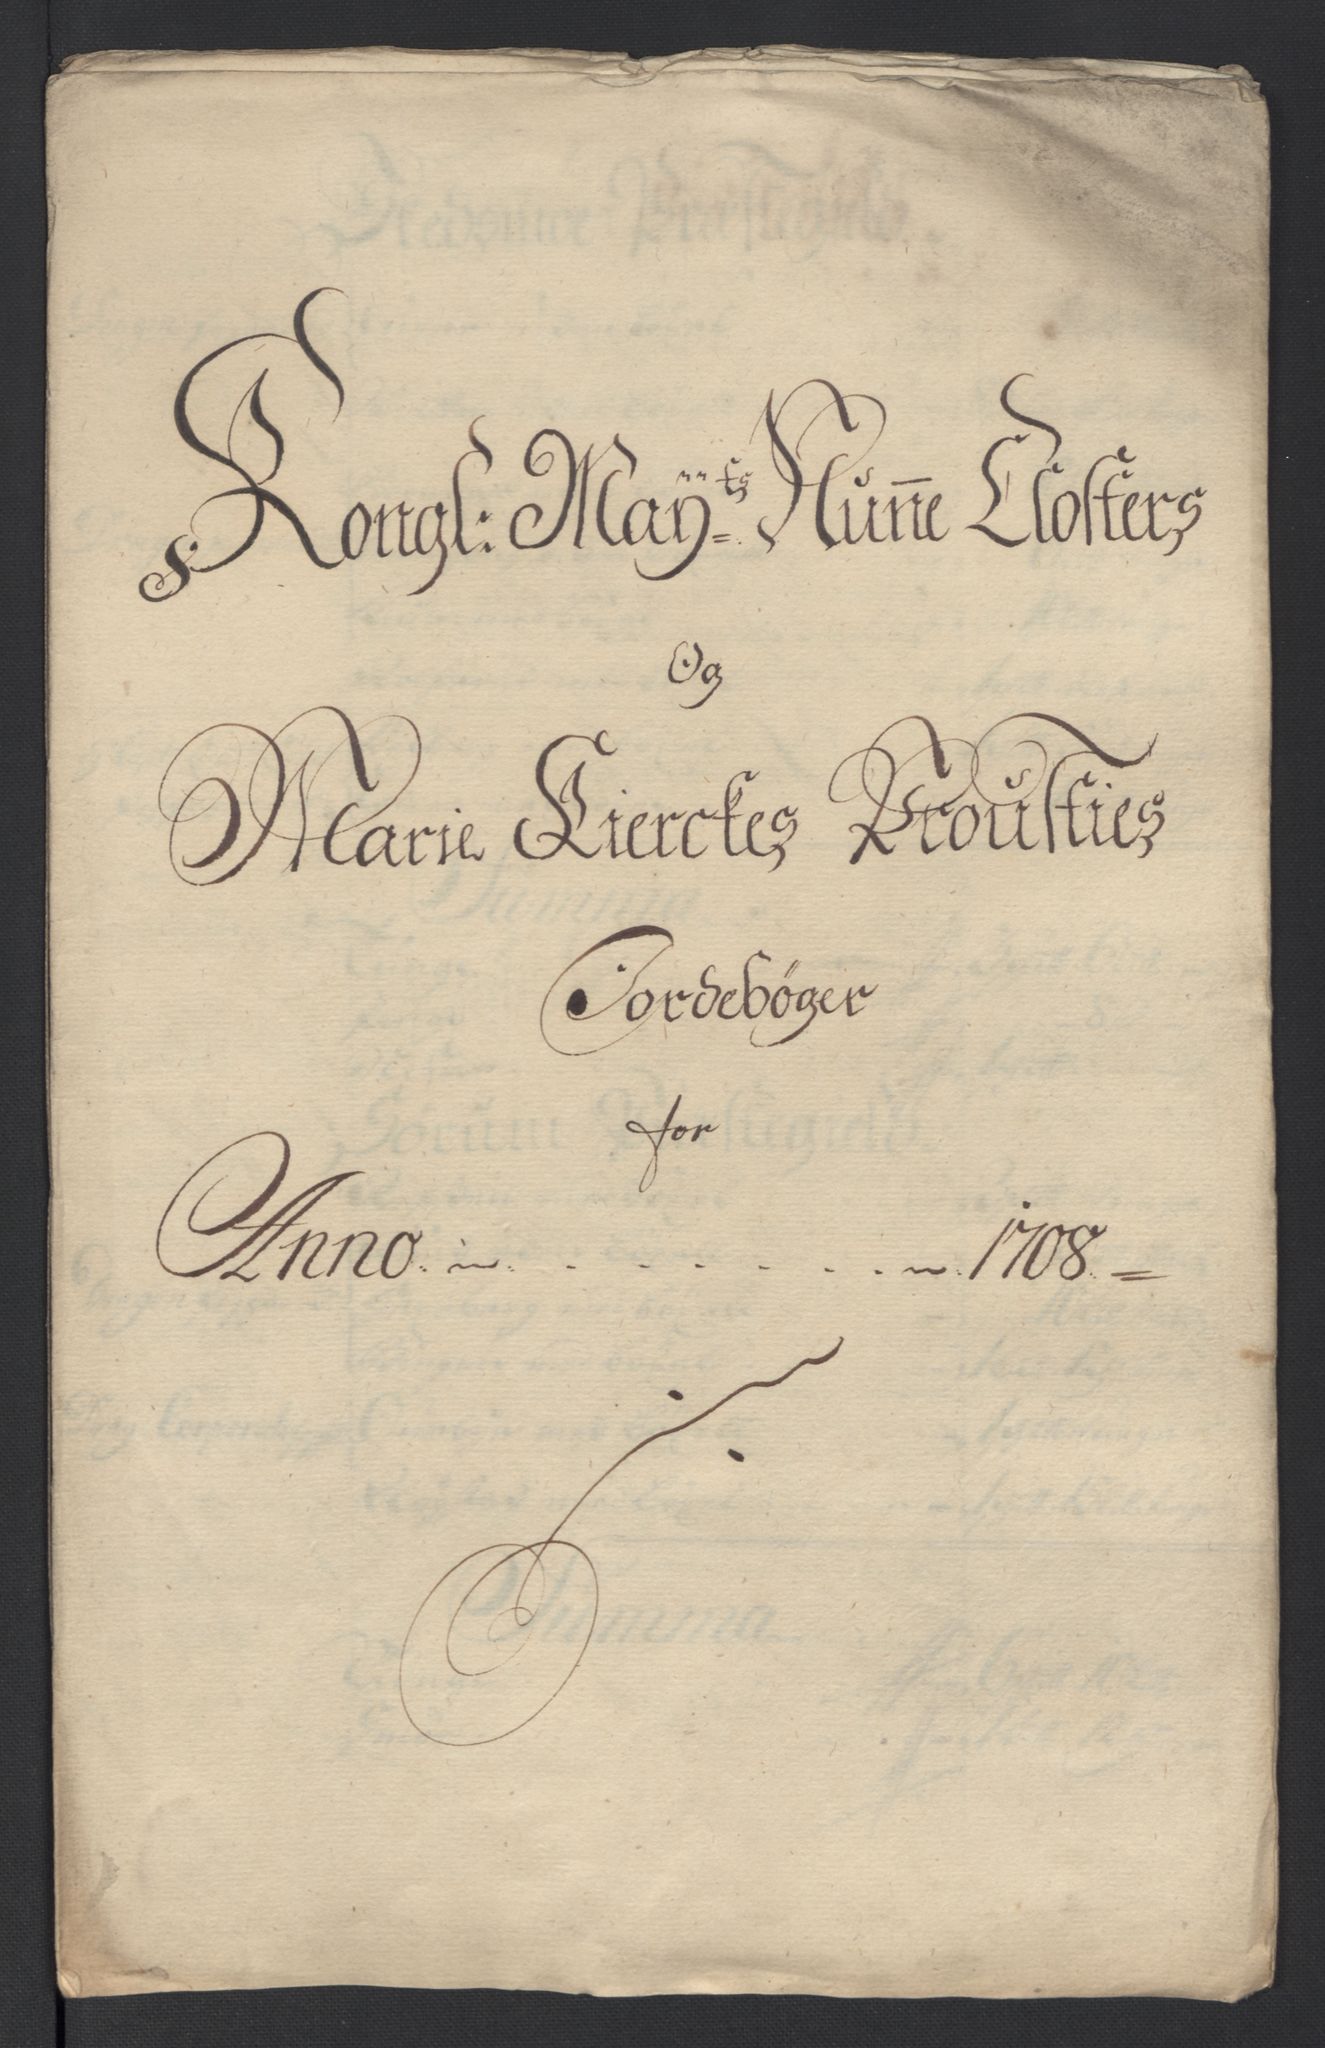 Kongl: Maÿ=ts Nuñe Closters
Og
Marie Kierckes Prousties
Jordebøger
for
Anno . . . . . . . 1708. =